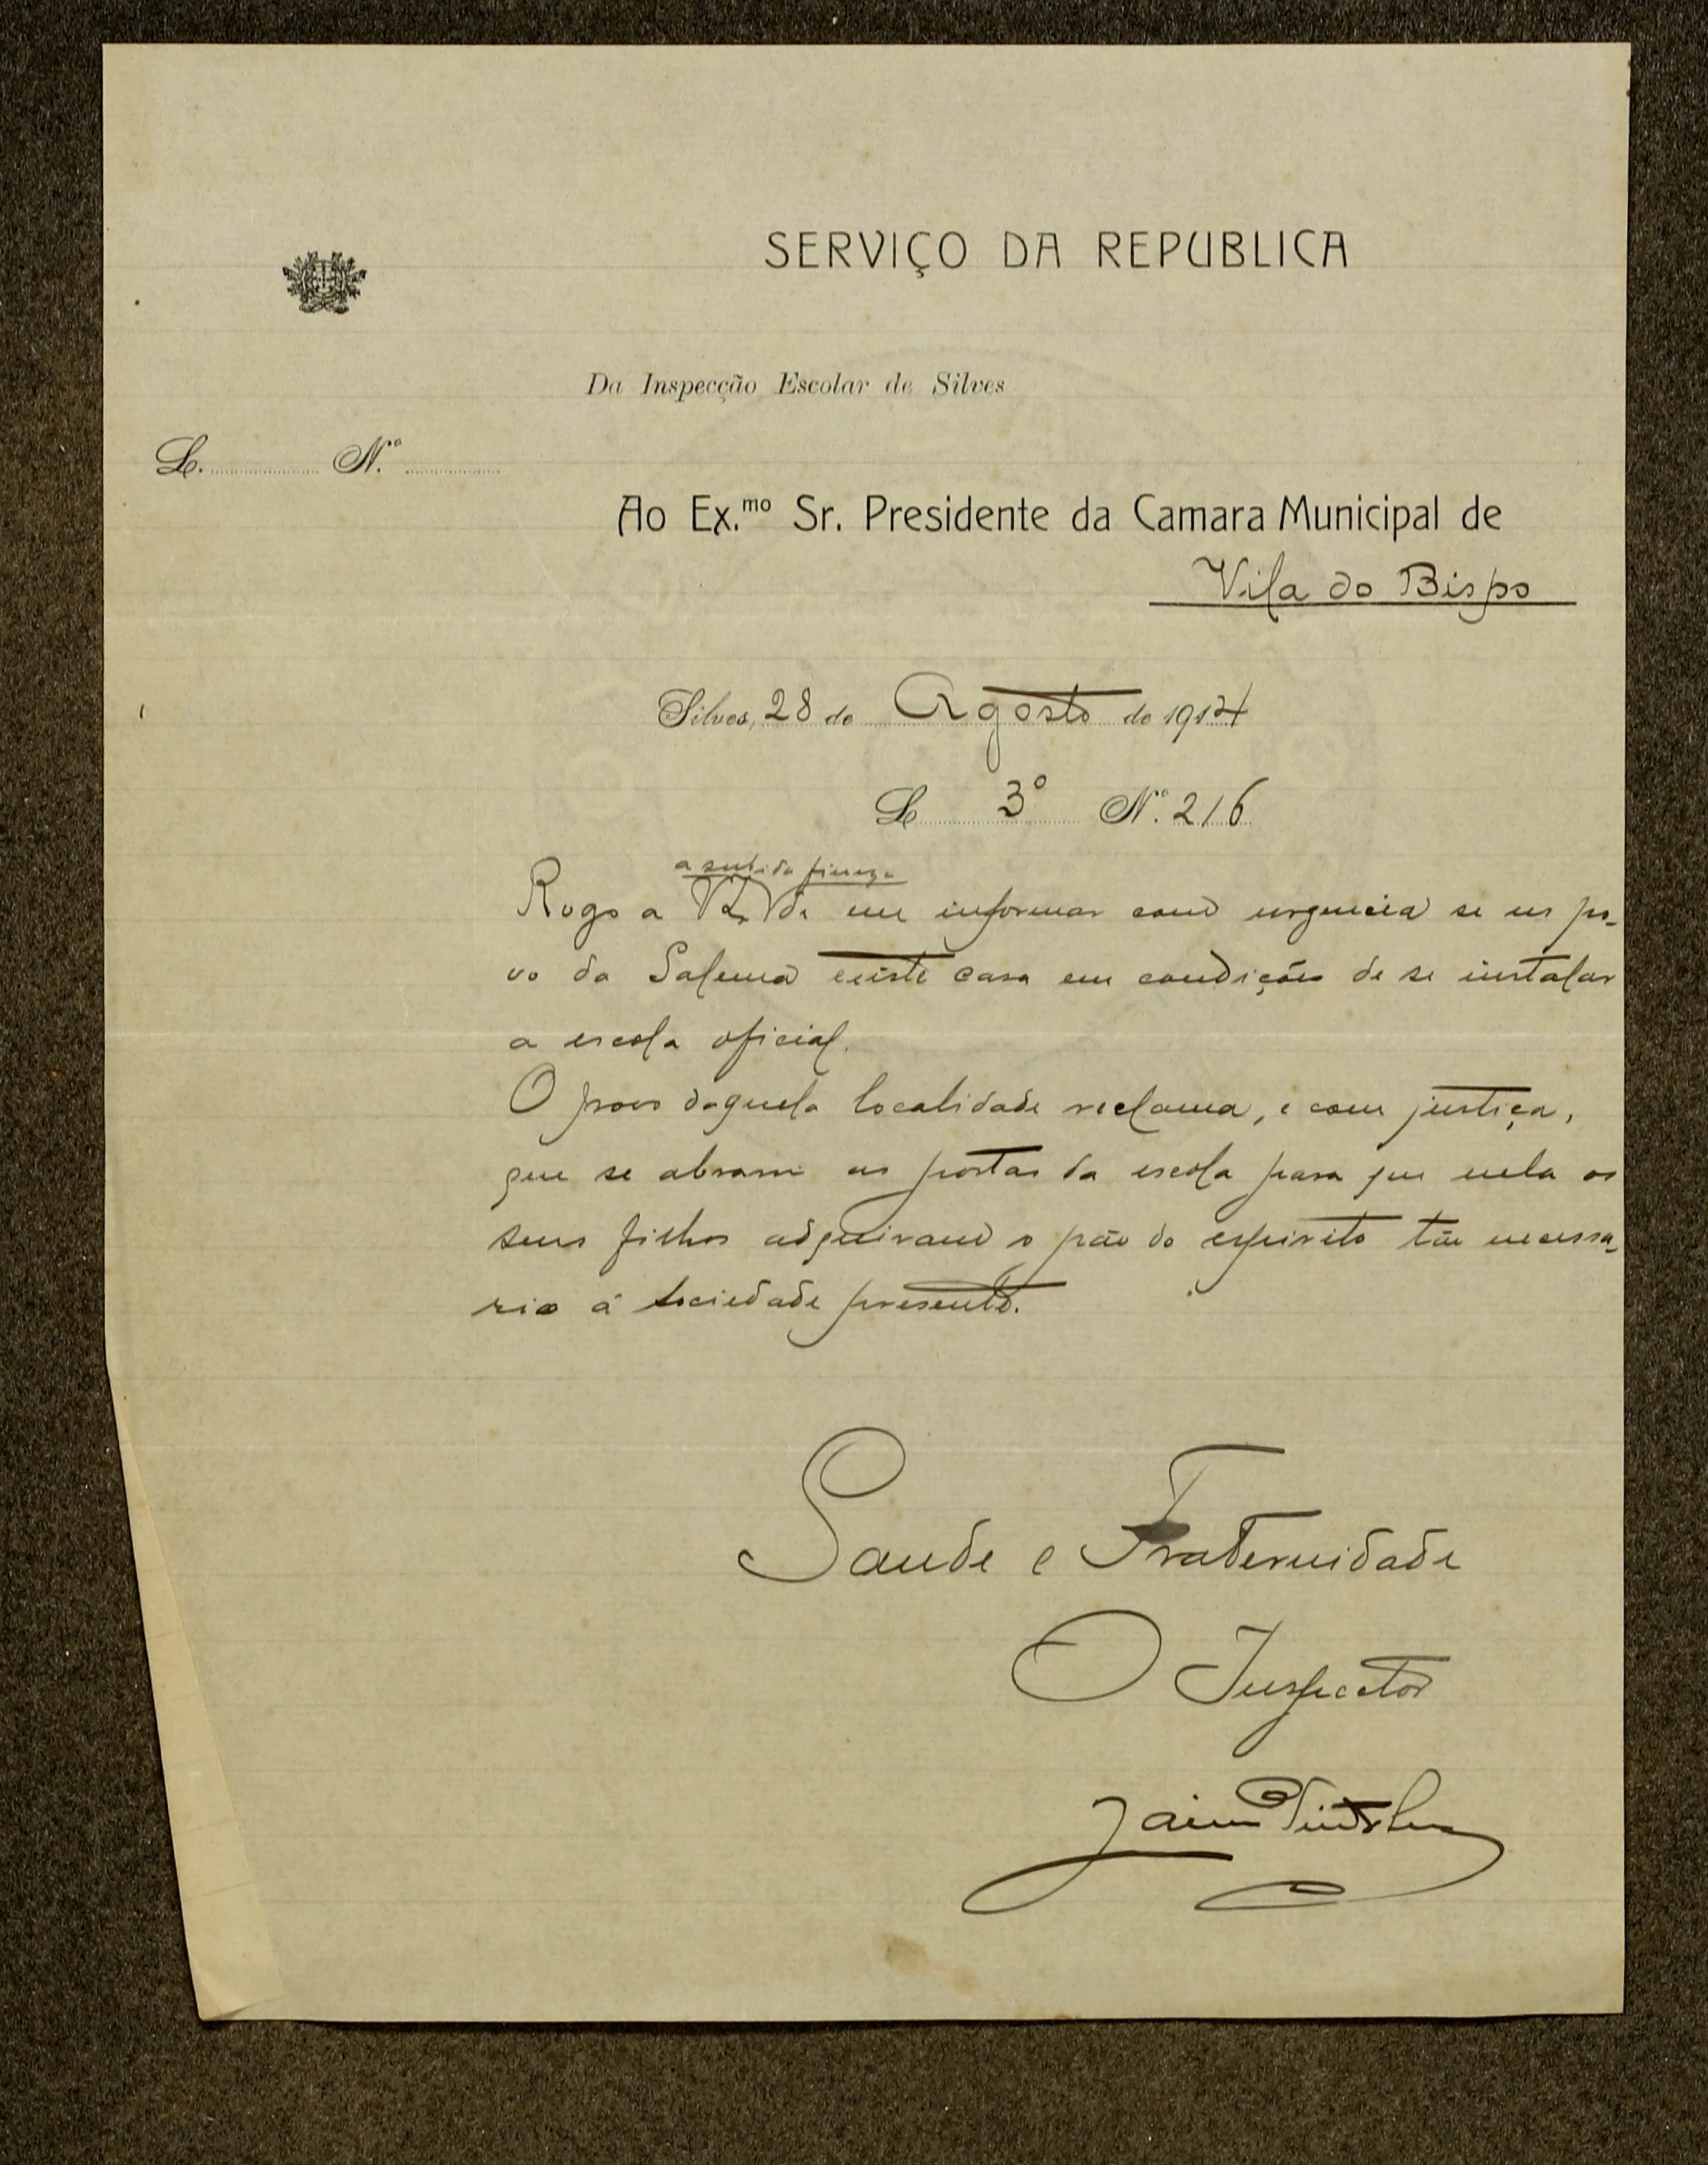 SERVIÇO DA REPUBLICA
Da Inspecção Escolar de Silves
L. N.º
Ao Ex.mo Sr. Presidente da Camara Municipal de
Vila do Bispo
Silves, 28 de Agosto de 1914
L 3º N.º 216
a subida fineza
Rogo a V. de me informar com urgencia se no po-
vo da Salema existe casa em condições de se instalar
a escola oficial.
O povo daquela localidade reclama, e com justiça,
que se abram as portas da escola para que nela os
seus filhos adquiram o pão do espirito tão necessa-
rio á sociedade presente.
Saude e Fraternidade
O Inspector
Jaime